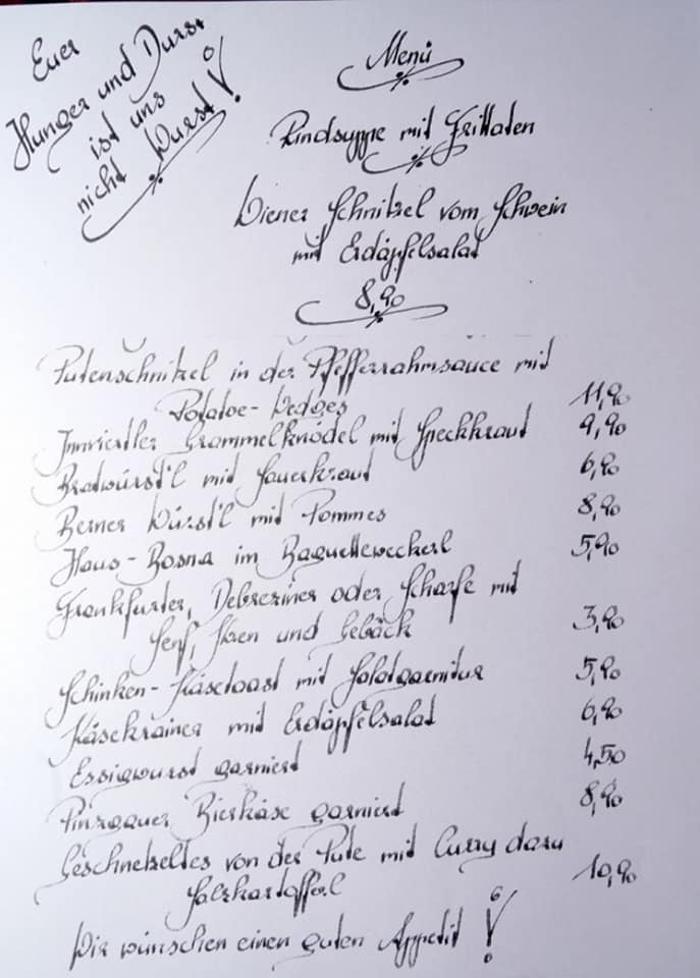 Euer
Hunger und Durst
ist uns
nicht Wurst!
Menü
Rindsuppe mit Frittaten
Wiener Schnitzel vom Schwein
mit Erdäpfelsalat
8,90
Putenschnitzel in der Pfefferrahmsauce mit
Potatoe-Wedges 11,90
Innviertler Grammelknödel mit Speckkraut 9,90
Bratwürst'l mit Sauerkraut 6,90
Berner Würst'l mit Pommes 8,90
Haus-Bosna im Baguetteweckerl 5,90
Frankfurter, Debreziner oder Scharfe mit
Senf, Kren und Gebäck 3,90
Schinken-Käsetoast mit Salatgarnitur 5,90
Käsekrainer mit Erdäpfelsalat 6,90
Essigwurst garniert 4,50
Pinzgauer Bierkäse garniert 8,90
Geschnetzeltes von der Pute mit Curry dazu
Salzkartoffel 10,90
Wir wünschen einen guten Appetit!